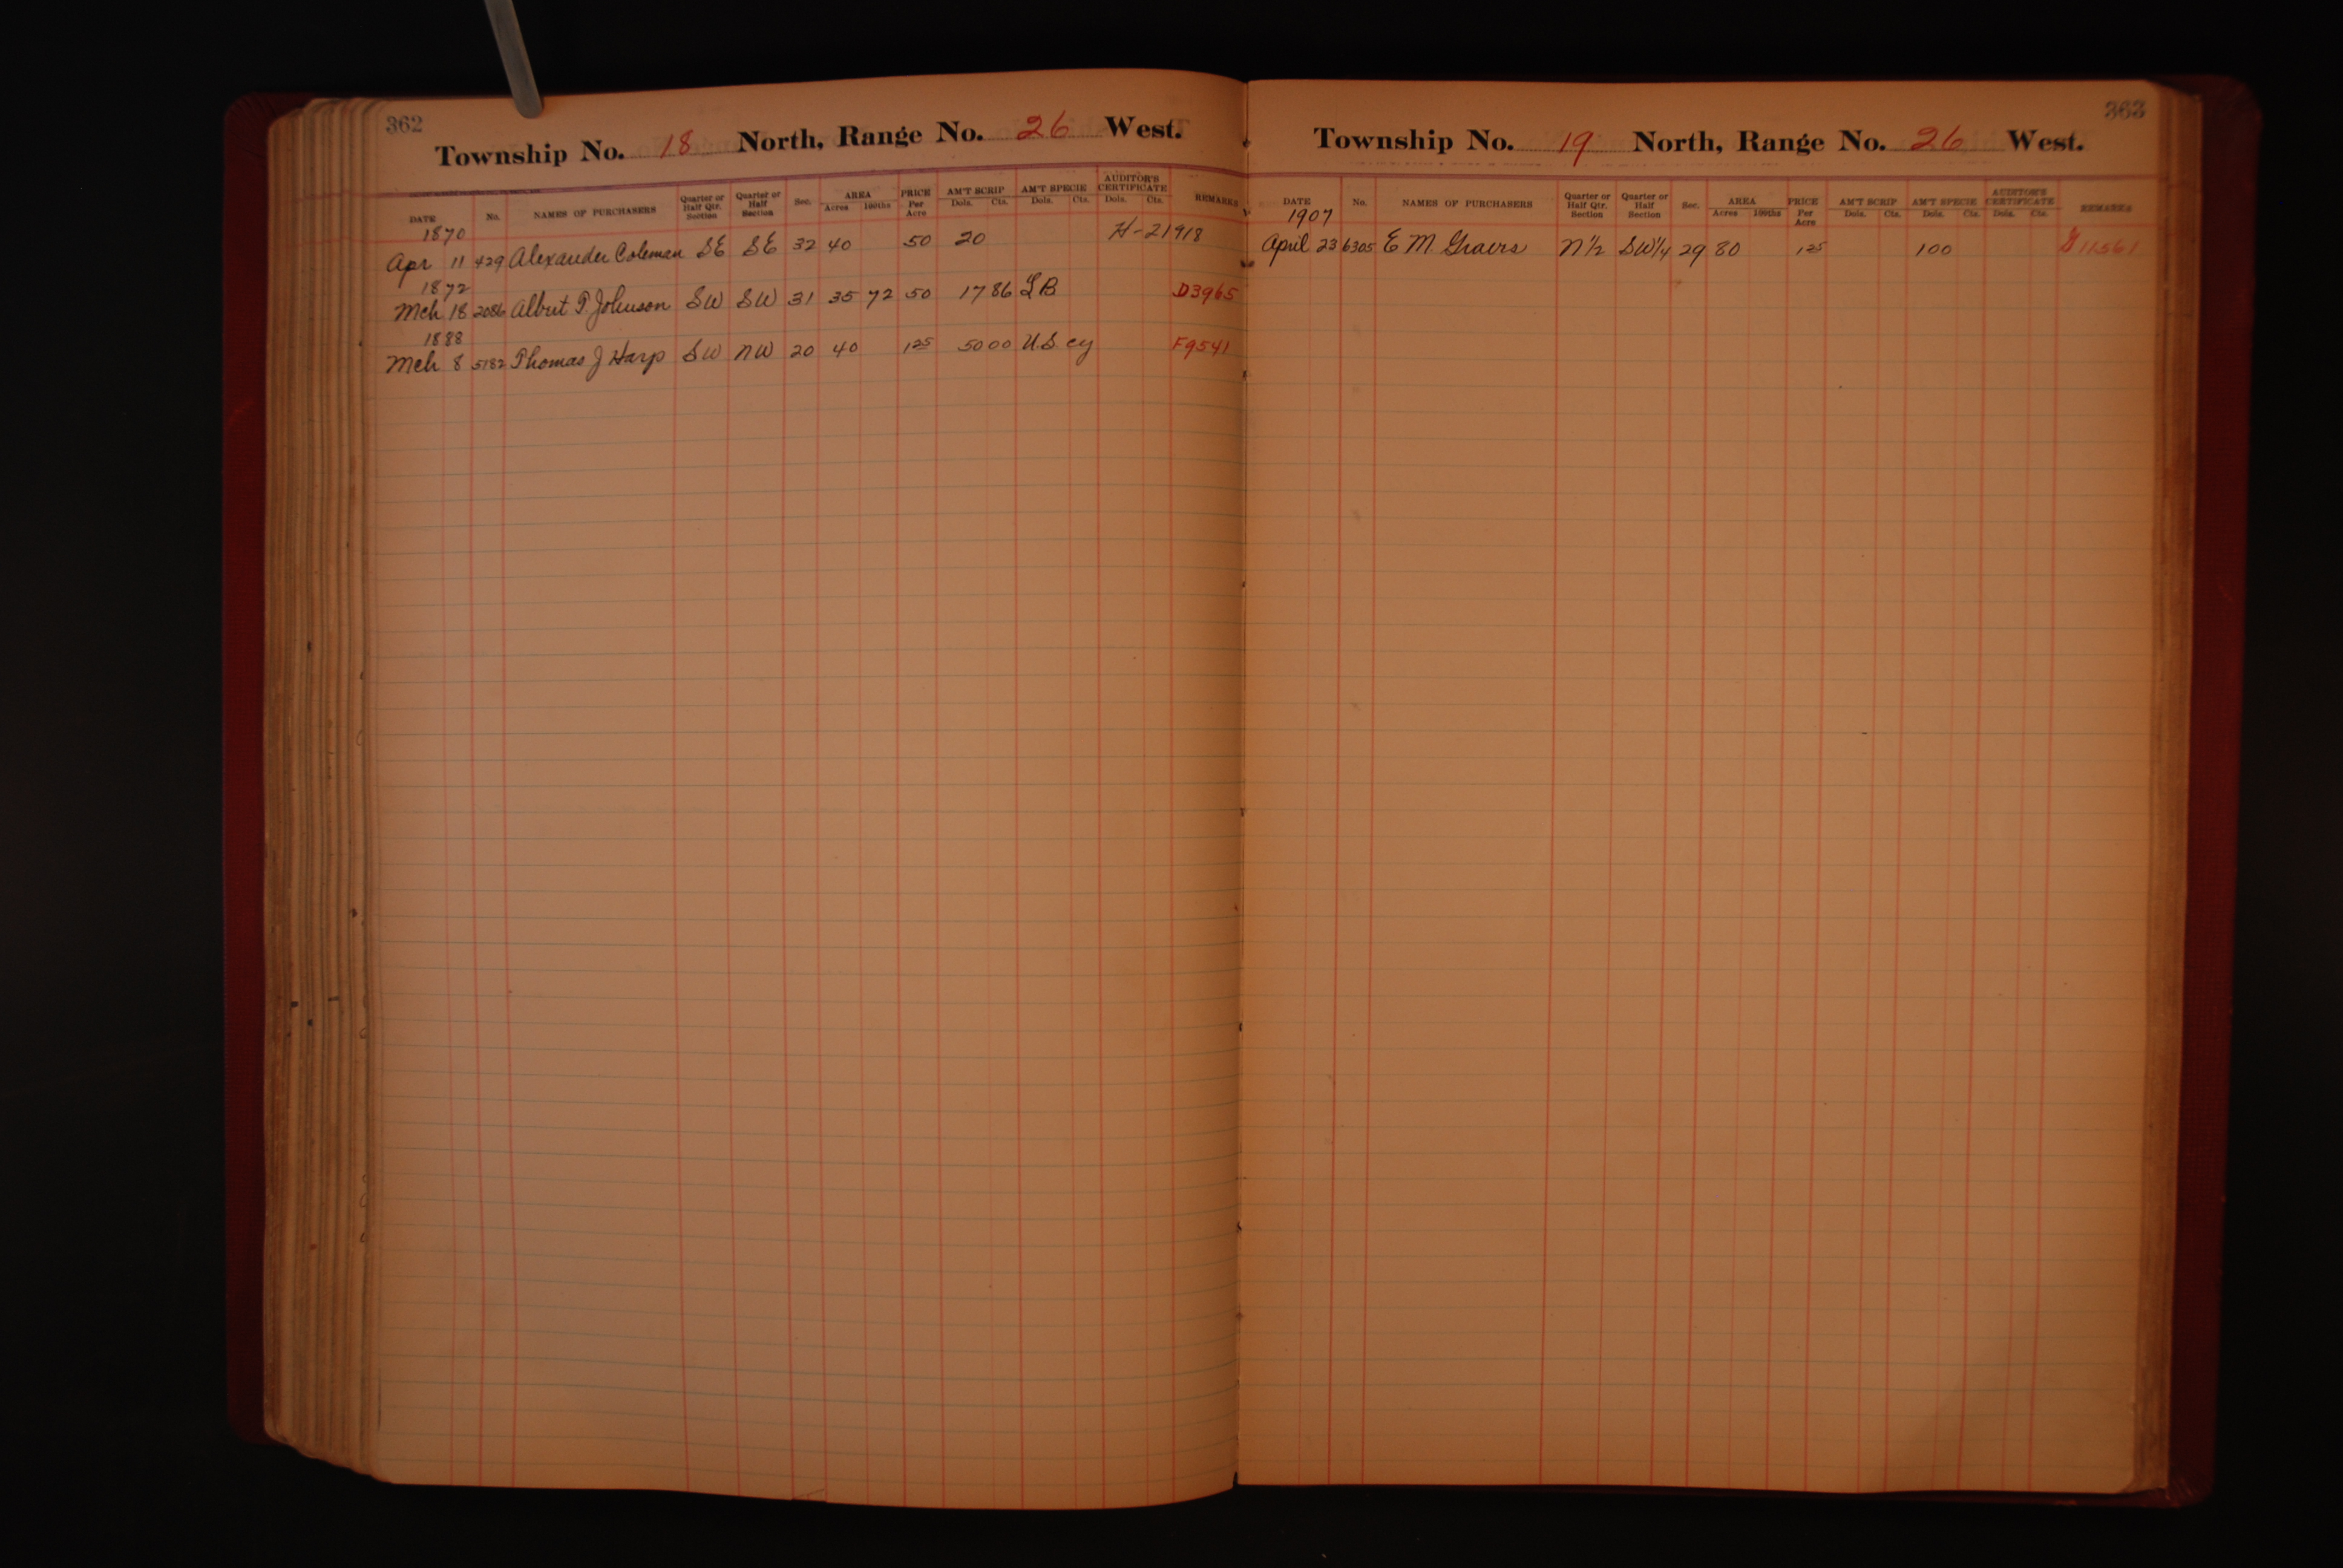 362
Township No. 18 North, Range No. 26 West.
DATE No. NAMES OF PURCHASERS Quarter or Half Qtr. Section Quarter or Half Section Sec. AREA Acres 100ths PRICE Per Acre AM'T SCRIP Dols. Cts. AM'T SPECIE Dols. Cts. AUDITOR'S CERTIFICATE Dols. Cts. REMARKS
1870
Apr 11 429 Alexander Coleman SE SE 32 40 50 20 H-21918
1872
Mch 18 2086 Albert P. Johnson SW SW 31 35 72 50 17 86 LB D3965
1888
Mch 8 5182 Thomas J Harp SW NW 20 40 1 25 50 00 U.S. cy F9541
363
Township No. 19 North, Range No. 26 West.
DATE No. NAMES OF PURCHASERS Quarter or Half Qtr. Section Quarter or Half Section Sec. AREA Acres 100ths PRICE Per Acre AM'T SCRIP Dols. Cts. AM'T SPECIE Dols. Cts. AUDITOR'S CERTIFICATE Dols. Cts. REMARKS
1907
April 23 6305 E M. N 1/2 SW 1/4 29 80 1 25 100 11561